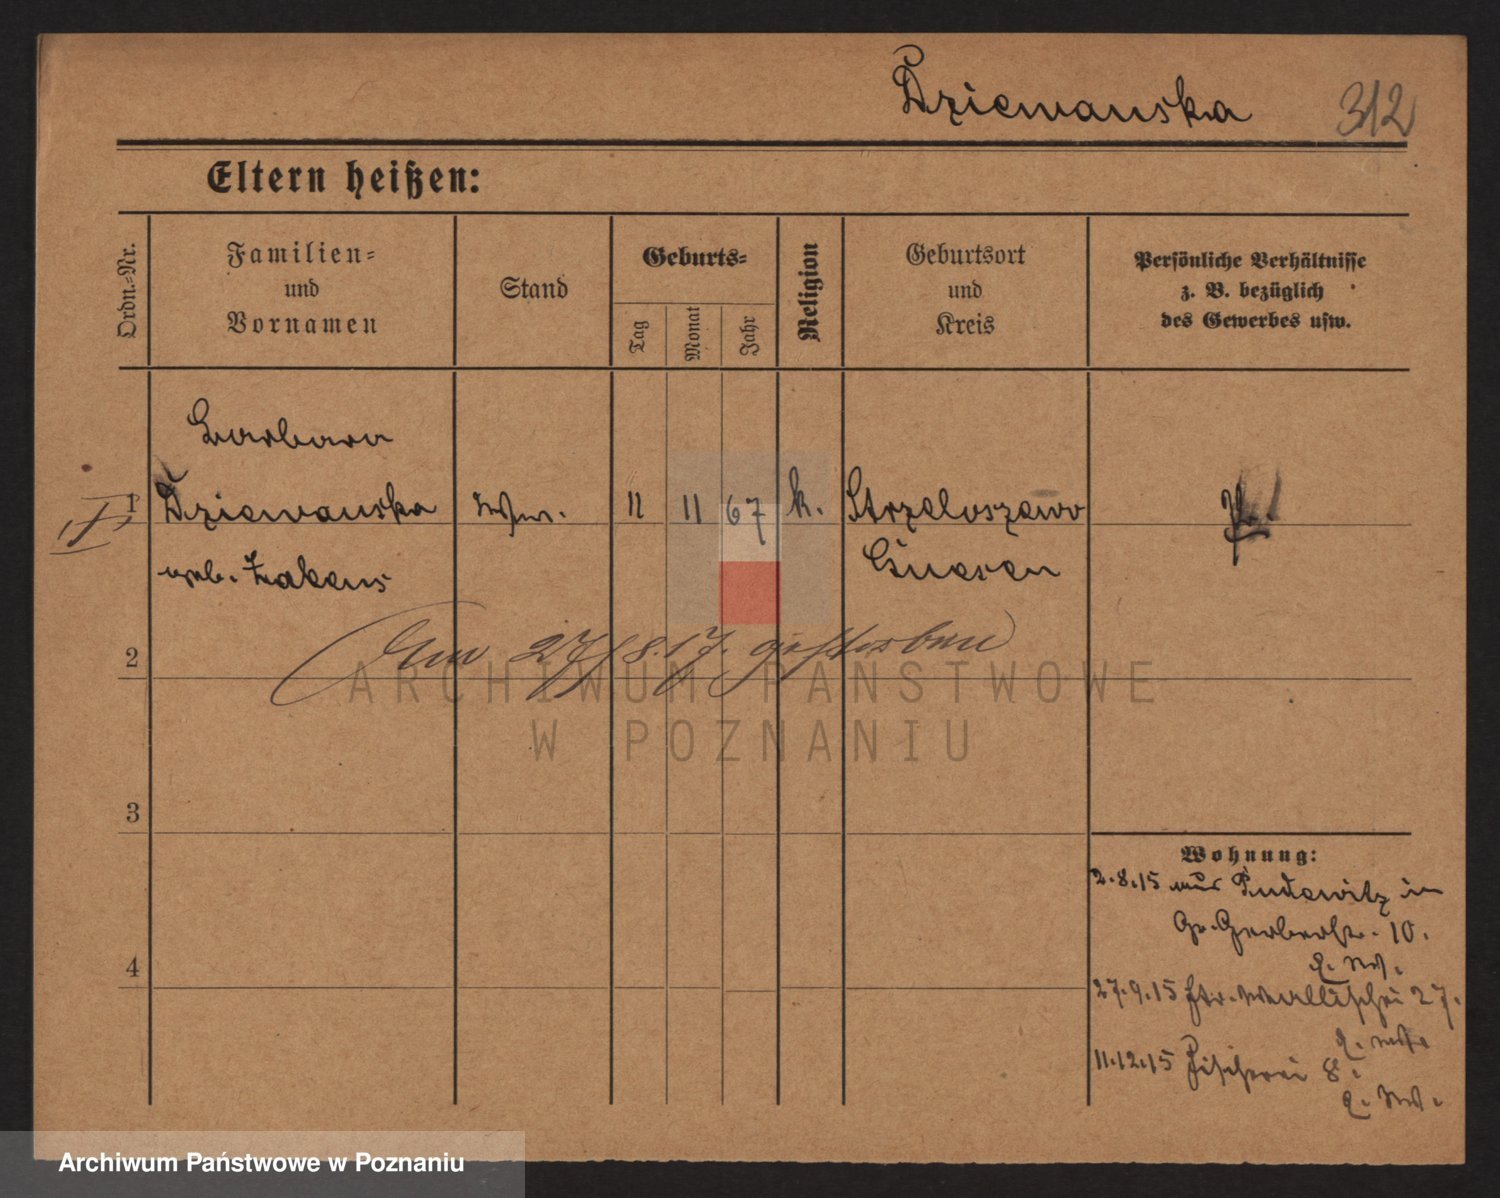 Dziewanska 312
Eltern heißen:
Ordn.-Nr.
Familien-
und
Vornamen
Stand
Geburts-
Tag
Monat
Jahr
Religion
Geburtsort
und
Kreis
Persönliche Verhältnisse
z. B. bezüglich
des Gewerbes usw.
Barbara
1 Dziewanska Wwe. 11 11 67 k. Strzeloszewo
geb. Gnesen
Am 27/8.17. gestorben
2
ARCHIWUM PAŃSTWOWE
W POZNANIU
3
Wohnung:
2.8.15 aus Pudewitz in
Gr. Gerberstr. 10.
4
27.9.15 Wallischei 27.
11.12.15 Fischerei 8.
Archiwum Państwowe w Poznaniu